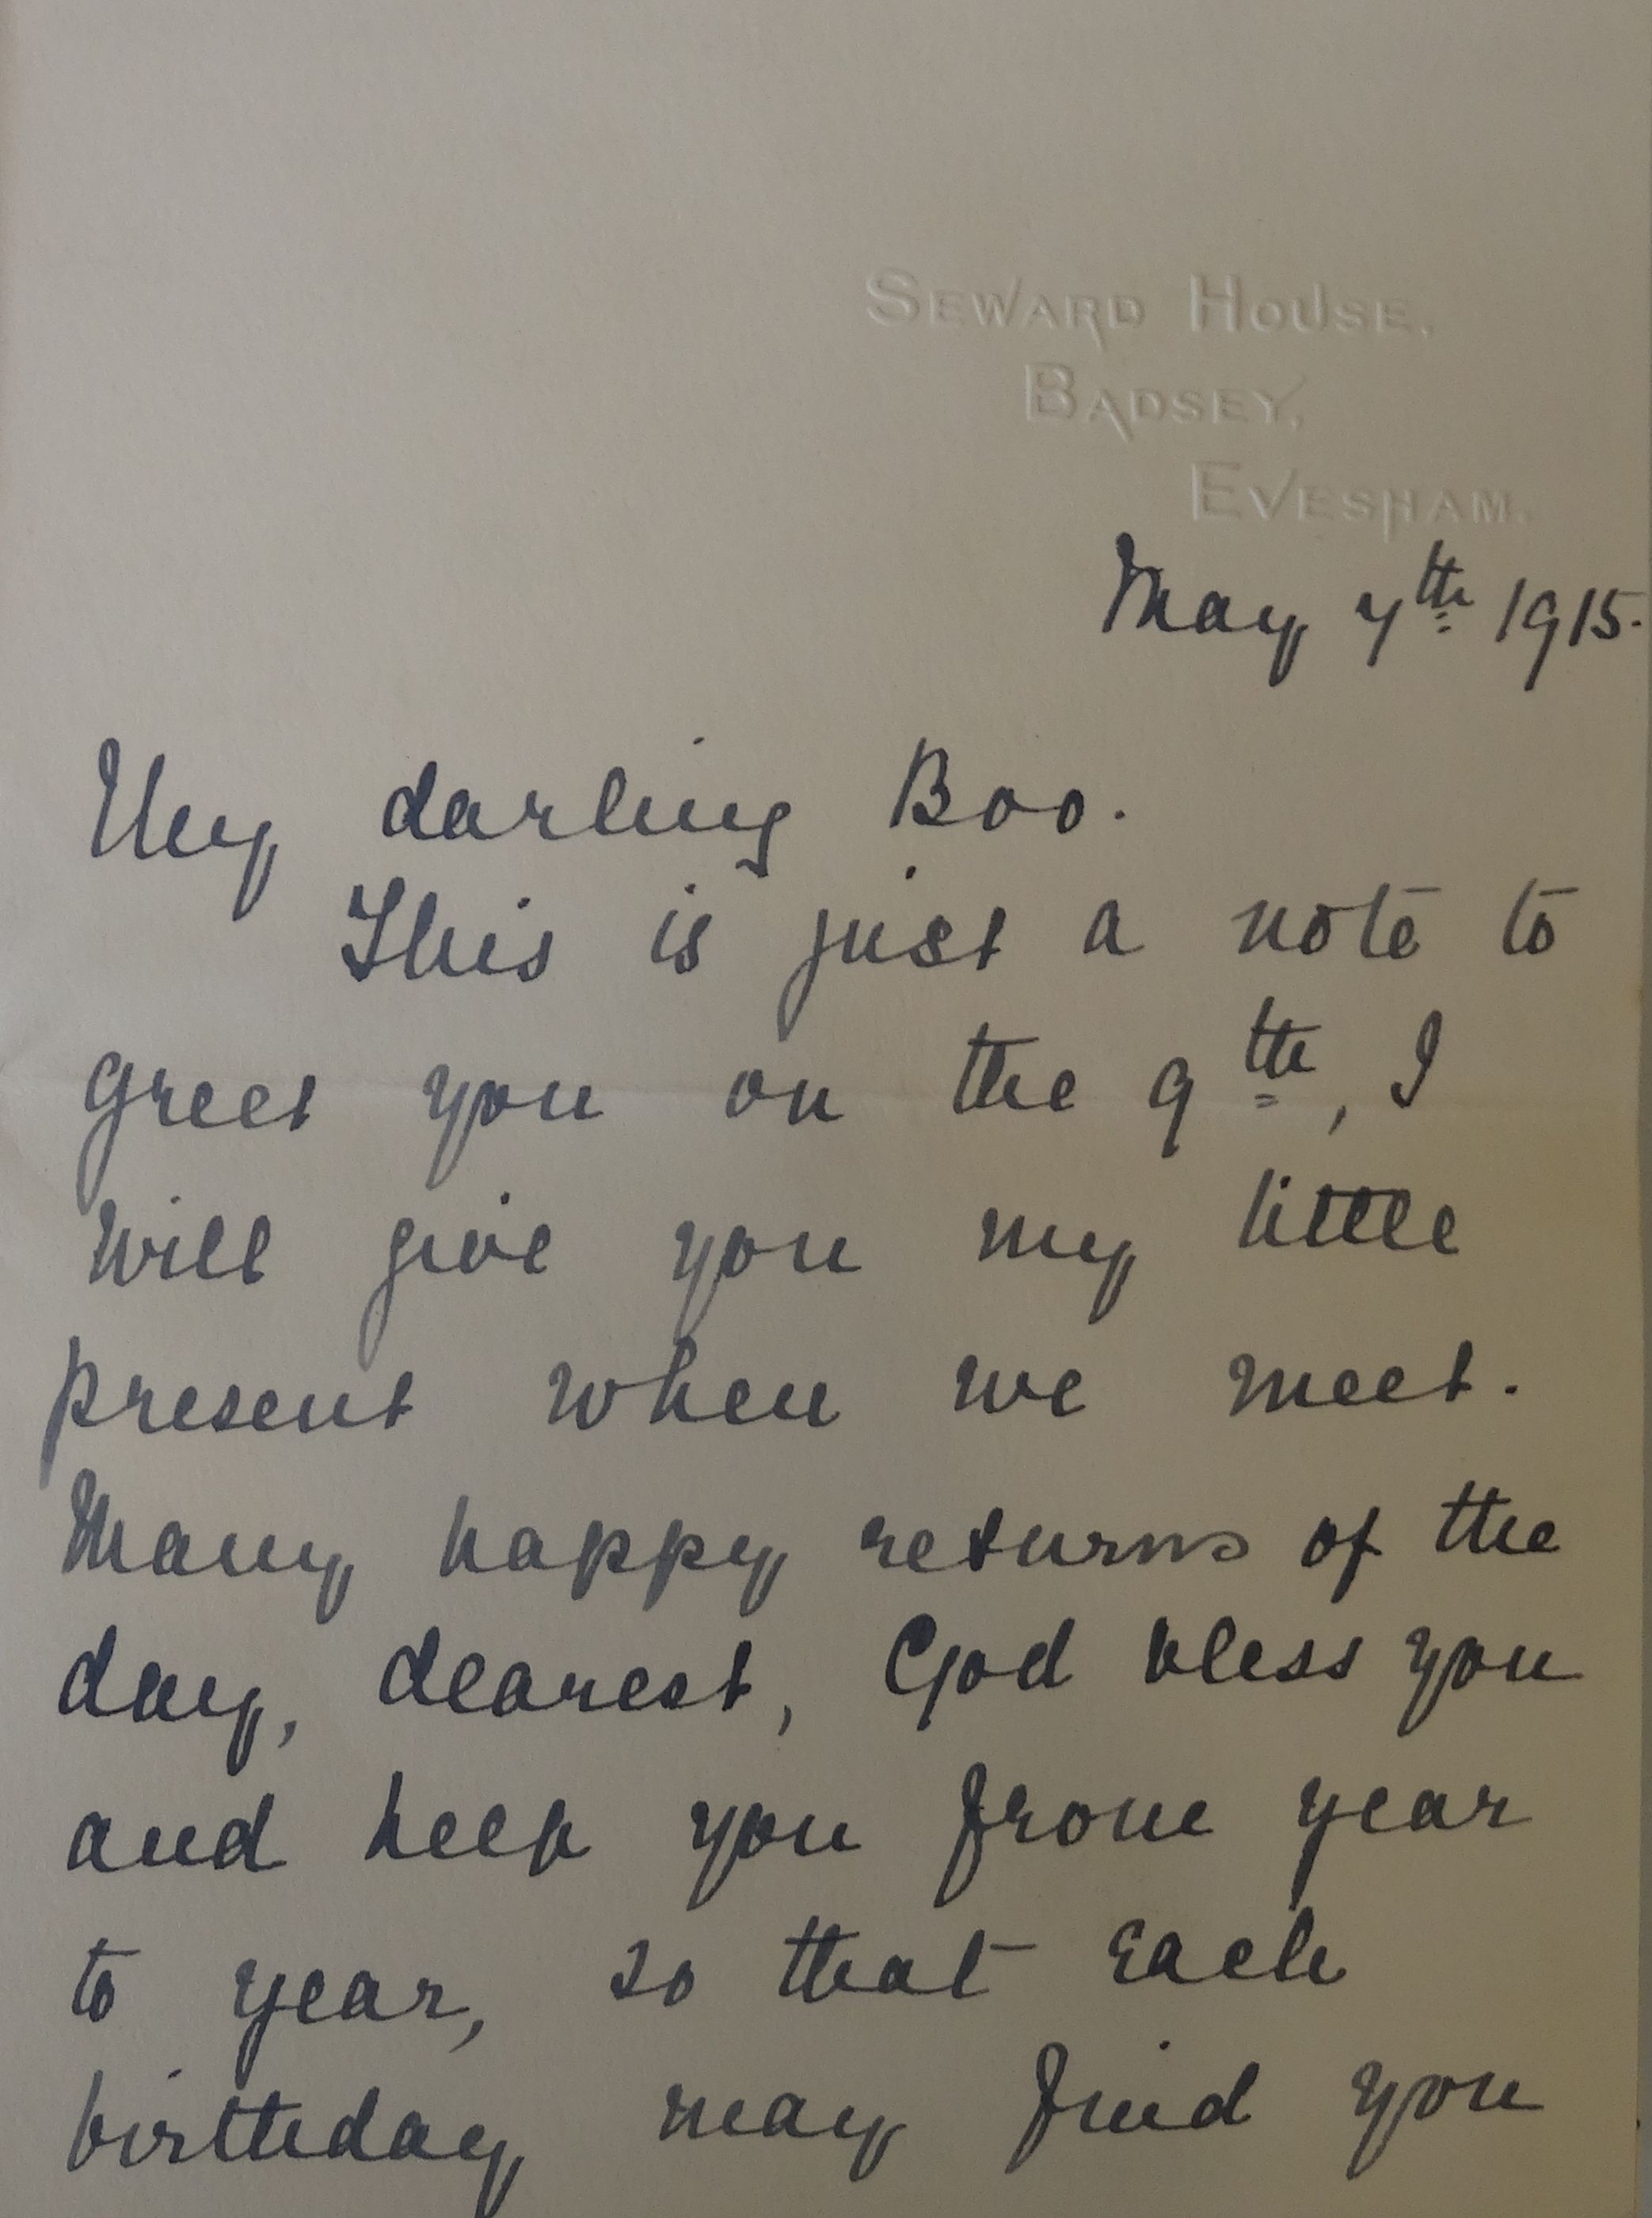 SEWARD HOUSE,
BADSEY,
EVESHAM.
May 7th 1915.
My darling Boo.
This is just a note to
greet you on the 9th, I
will give you my little
present when we meet.
Many happy returns of the
day, dearest, God bless you
and keep you from year
to year, so that each
birthday may find you